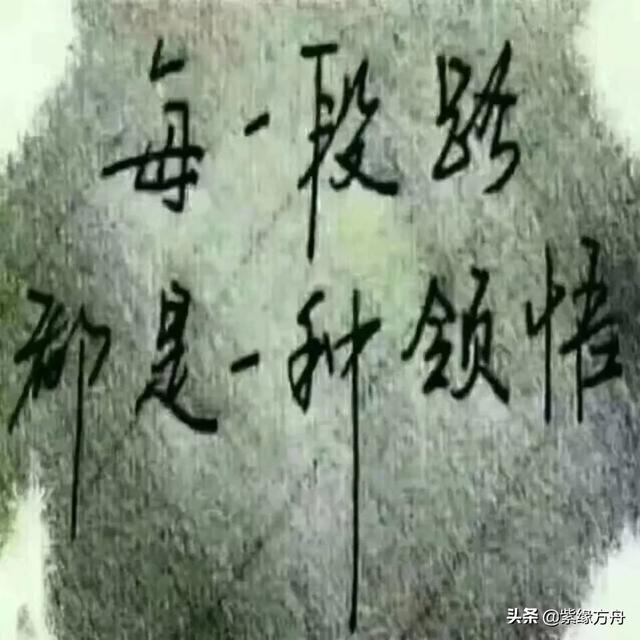 每一段路
都是一种领悟
头条 @紫缘方舟